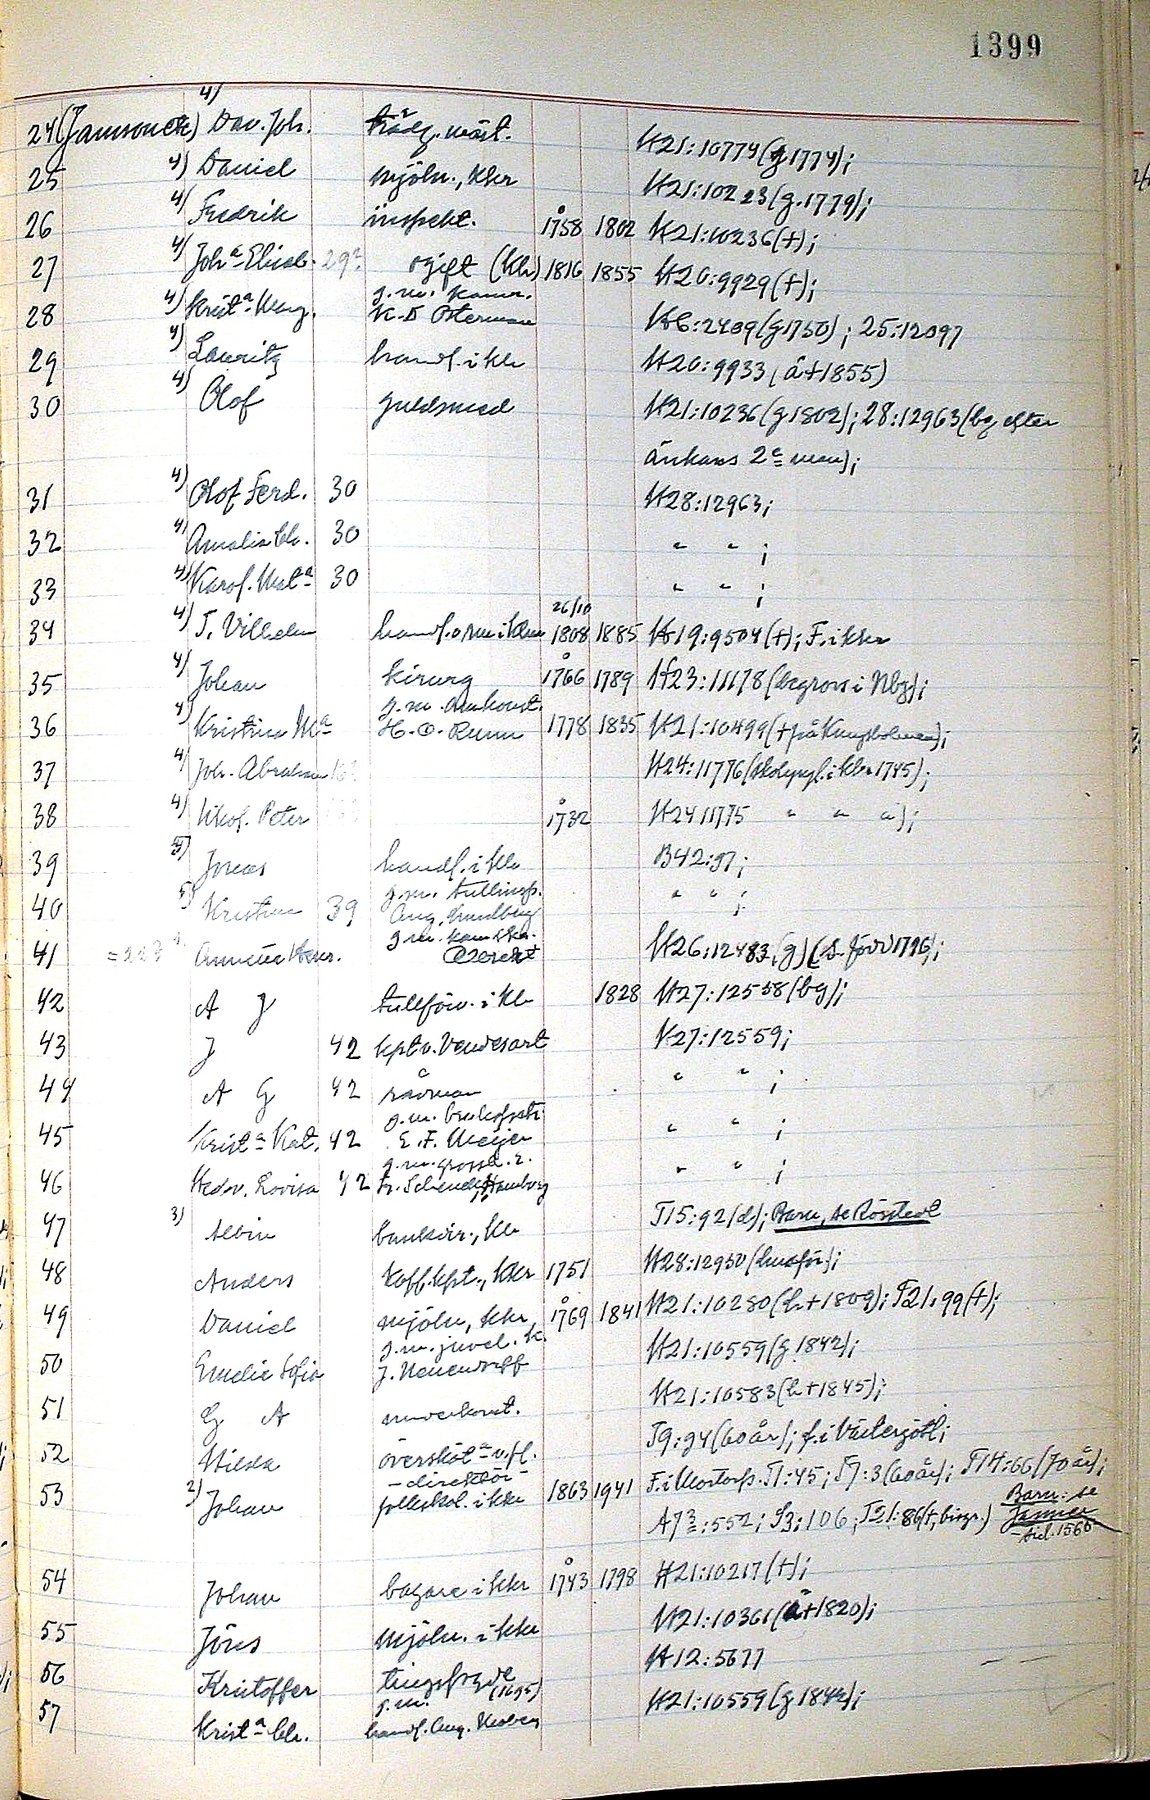 1399
24 (Jansson etc) 4) Dav. Joh. trädg. mäst. H21:10774 (g 1774);
25 4) Daniel mjöln., Khr H21:10223 (g. 1779);
26 4) Fredrik inspekt. 1758 1802 H21:10236 (†);
27 4) Joh:a Elisab. 29? ogift (Kh) 1816 1855 H20:9929 (†);
28 4) Krist:a Marg. g.m. kamr. K.D Osterman H6:2409 (g 1750); 25:12097
29 4) Lauritz handl. i Kh H20:9933 (ä † 1855)
30 4) Olof guldsmed H21:10236 (g 1802); 28:12963 (bg efter
änkans 2:e man);
31 4) Olof Ferd. 30 H28:12963;
32 4) Amalia Ch. 30 " " ;
33 4) Karol. Mat:a 30 " " ;
34 4) T. Vilhelm handl. o rm i Khn 26/10 1808 1885 H19:9504 (†); F. i Khr
35 4) Johan kirurg 1766 1789 H23:11178 (begravs i Nbg);
36 4) Kristina M:a g.m. H. O. Rumm 1778 1835 H21:10499 († på Kungsholmen);
37 4) Joh. Abraham H24:11776 (skolyngl. i Khr 1745);
38 4) Nikol. Peter 1732 H24 11775 " " " );
39 5) Jonas handl. i Kh B42:97;
40 5) Kristina 39 g.m. tullinsp. Aug. Lundberg " " ;
41 =223 g.m. H26:12483 (g) (s. förv 1796);
42 A J tullförv. i Kh 1828 H27:12558 (bg);
43 J 42 kpt v. Vendesart H27:12559;
44 A G 42 rådman " " ;
45 Krist:a Kat. 42 g.m. E. F. Meijer " " ;
46 Hedv. Lovisa 42 g.m. grossh. i Hamburg " " ;
47 3) Albin bankdir., Kh T15:92 (d); Barn, se Röstedt
48 Anders koff.kpt., Khr 1751 H28:12930
49 Daniel mjöln, Khr, 1769 1841 H21:10280 (h † 1809); T21:99 (†);
50 Emelie Sofia g.m. juvel. K. J. Neuendorff H21:10559 (g 1842);
51 G A H21:10583 (h † 1845);
52 Hilda översköt:a v. fl. T9:94 (60 år); f. i Västergötl;
53 2) Johan -direktör- folkskol. i Khr 1863 1941 F. i T1:45; T7:3 (60 år); T14:66 (70 år);
A7 3:552; S3:106; T21:86 (†, biogr.) Barn: se Janner
- sid. 1566
54 Johan bagare i Khr 1743 1798 H21:10217 (†);
55 Jöns mjöln. i Khr H21:10361 (ä † 1820);
56 Kristoffer tingsfogde (1695) H12:5677
57 Krist:a Ch. g.m. handl. Aug. H21:10559 (g 1842);